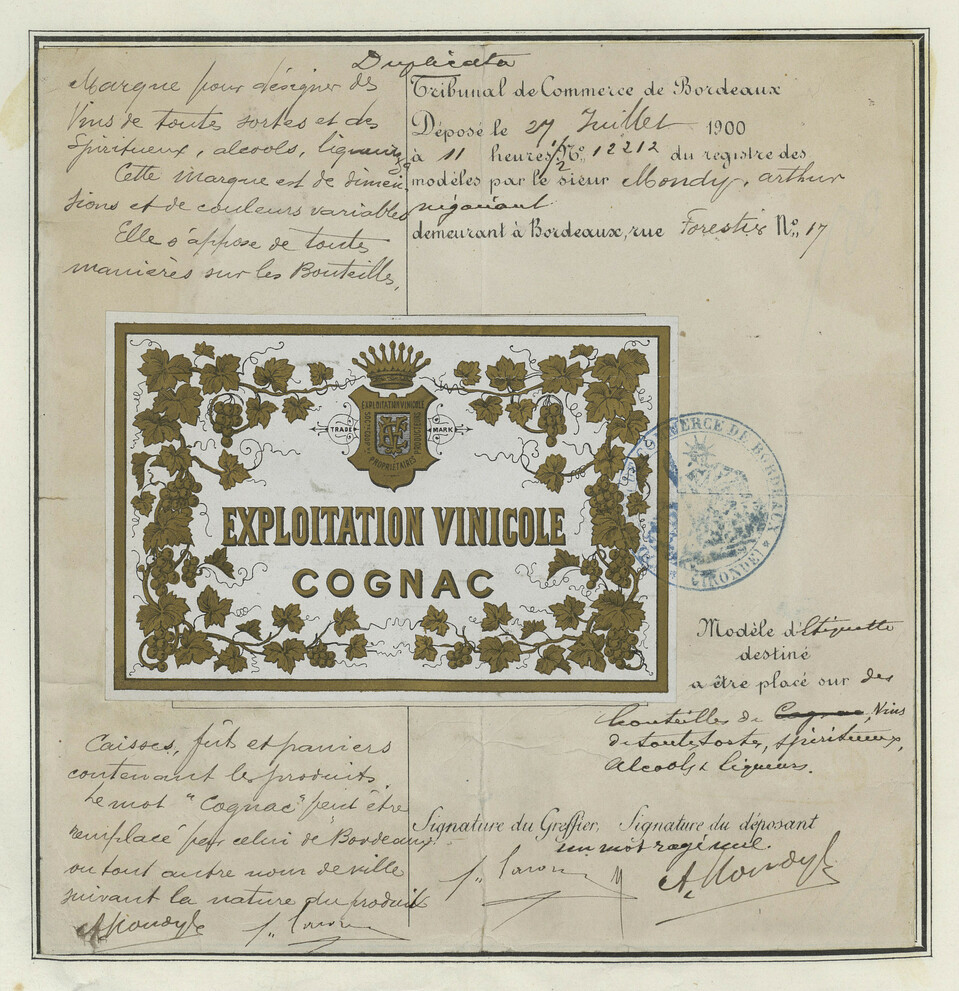 Duplicata
Marque pour désigner des
Vins de toutes sortes et des
Spiritueux, alcools, liqueurs
Cette marque est de dimen
sions et de couleurs variables
Elle s'appose de toutes
manières sur les Bouteilles,
Tribunal de Commerce de Bordeaux
Déposé le 27 Juillet 1900
à 11 heures 1/2 No. 12212 du registre des
modèles par le sieur Mondy, arthur
négociant
demeurant à Bordeaux, rue Forestier No. 17
EXPLOITATION VINICOLE
PROPRIÉTAIRES
TRADE MARK
EXPLOITATION VINICOLE
COGNAC
COMMERCE DE BORDEAUX
(GIRONDE)
Modèle d'Etiquette
destiné
a être placé sur des
bouteilles de Cognac, Vins
de toute sorte, spiritueux,
Alcools & liqueurs.
Caisses, fûts et paniers
contenant les produits
Le mot "Cognac" peut être
remplacé par celui de Bordeaux
ou tout autre nom de ville
suivant la nature du produit
Signature du Greffier, Signature du déposant
un mot rayé nul.